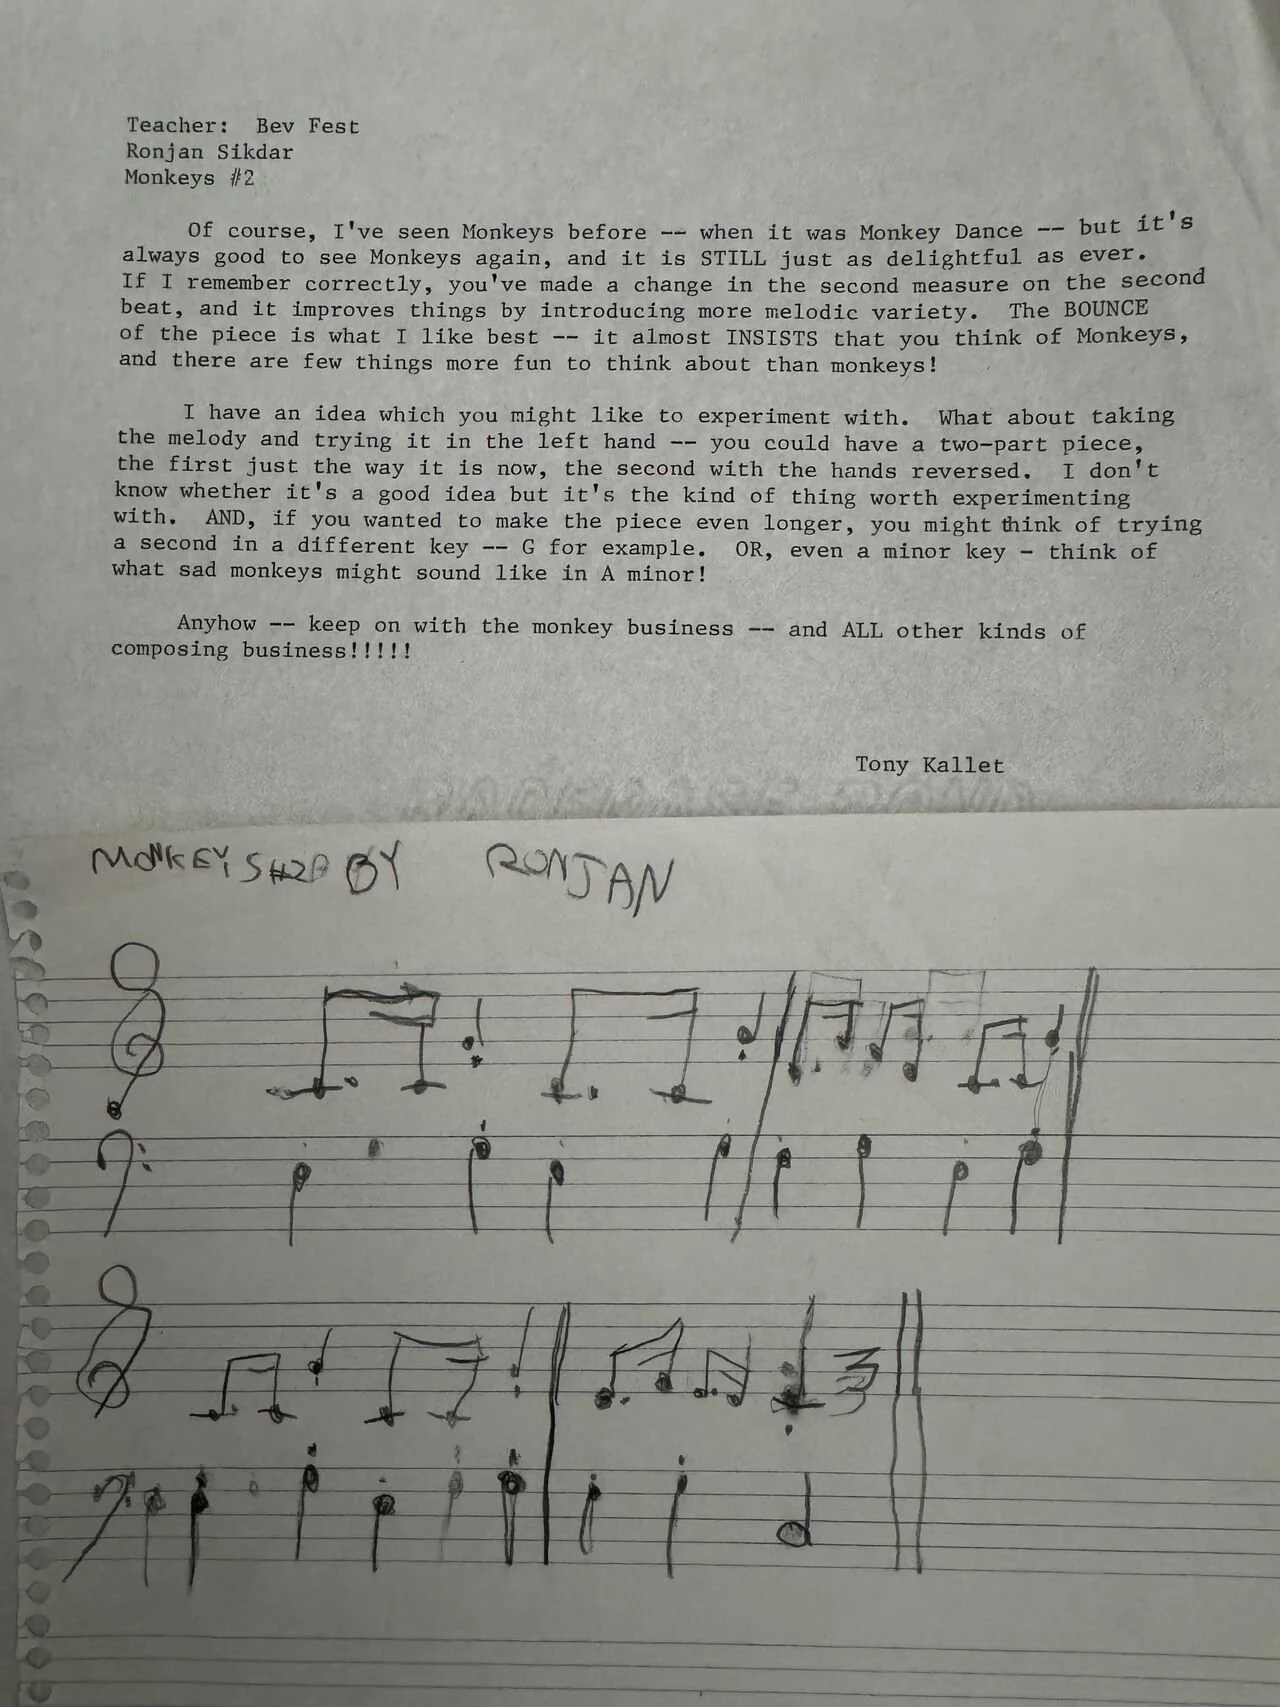 Teacher:  Bev Fest
Ronjan Sikdar
Monkeys #2
Of course, I've seen Monkeys before -- when it was Monkey Dance -- but it's
always good to see Monkeys again, and it is STILL just as delightful as ever.
If I remember correctly, you've made a change in the second measure on the second
beat, and it improves things by introducing more melodic variety.  The BOUNCE
of the piece is what I like best -- it almost INSISTS that you think of Monkeys,
and there are few things more fun to think about than monkeys!
I have an idea which you might like to experiment with.  What about taking
the melody and trying it in the left hand -- you could have a two-part piece,
the first just the way it is now, the second with the hands reversed.  I don't
know whether it's a good idea but it's the kind of thing worth experimenting
with.  AND, if you wanted to make the piece even longer, you might think of trying
a second in a different key -- G for example.  OR, even a minor key - think of
what sad monkeys might sound like in A minor!
Anyhow -- keep on with the monkey business -- and ALL other kinds of
composing business!!!!!
Tony Kallet
MONKEYS #2 BY RONJAN